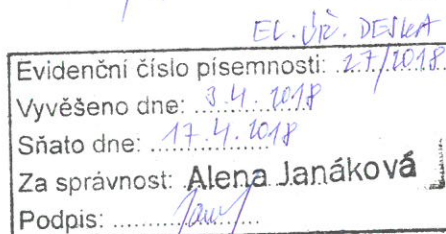 EL. ÚŘ. DESKA
Evidenční číslo písemnosti: 27/2018
Vyvěšeno dne: 3.4.2018
Sňato dne: 17.4.2018
Za správnost: Alena Janáková
Podpis: